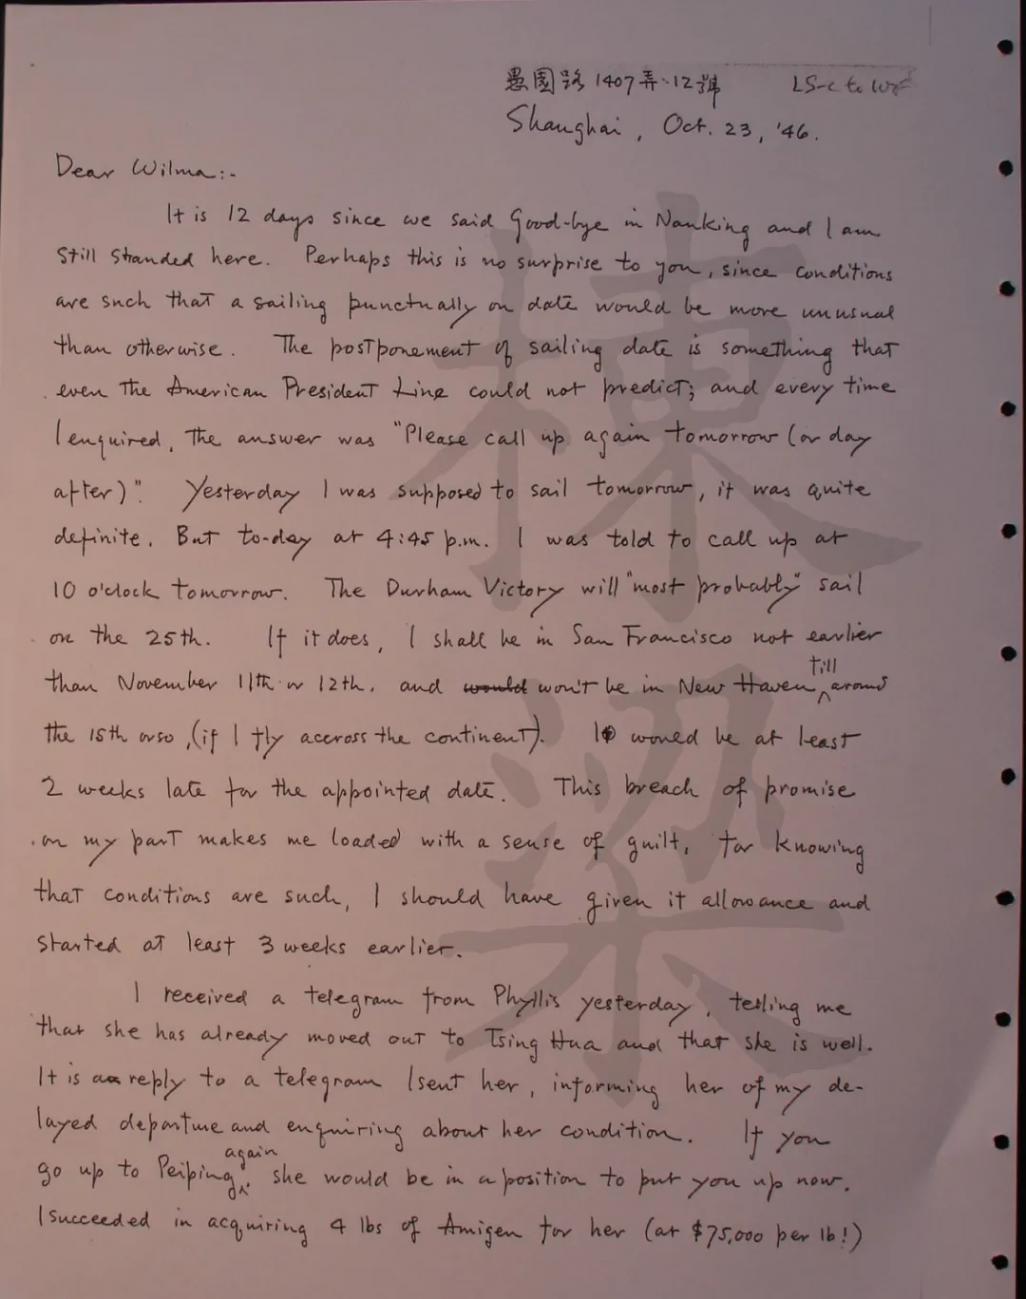 愚園路1407弄·12號
LS-c to W
Shanghai, Oct. 23, '46.
Dear Wilma:-
It is 12 days since we said Good-bye in Nanking and I am
still stranded here. Perhaps this is no surprise to you, since conditions
are such that a sailing punctually on date would be more unusual
than otherwise. The postponement of sailing date is something that
even the American President Line could not predict; and every time
I enquired, the answer was "Please call up again tomorrow (or day
after)". Yesterday I was supposed to sail tomorrow, it was quite
definite. But to-day at 4:45 p.m. I was told to call up at
10 o'clock tomorrow. The Durham Victory will "most probably" sail
on the 25th. If it does, I shall be in San Francisco not earlier
than November 11th or 12th, and would won't be in New Haven till around
the 15th or so, (if I fly accross the continent). I would be at least
2 weeks late for the appointed date. This breach of promise
on my part makes me loaded with a sense of guilt, for knowing
that conditions are such, I should have given it allowance and
started at least 3 weeks earlier.
I received a telegram from Phyllis yesterday, telling me
that she has already moved out to Tsing Hua and that she is well.
It is a reply to a telegram I sent her, informing her of my de-
layed departure and enquiring about her condition. If you
go up to Peiping again, she would be in a position to put you up now.
I succeeded in acquiring 4 lbs of Amigen for her (at $75,000 per lb!)
棟
梁